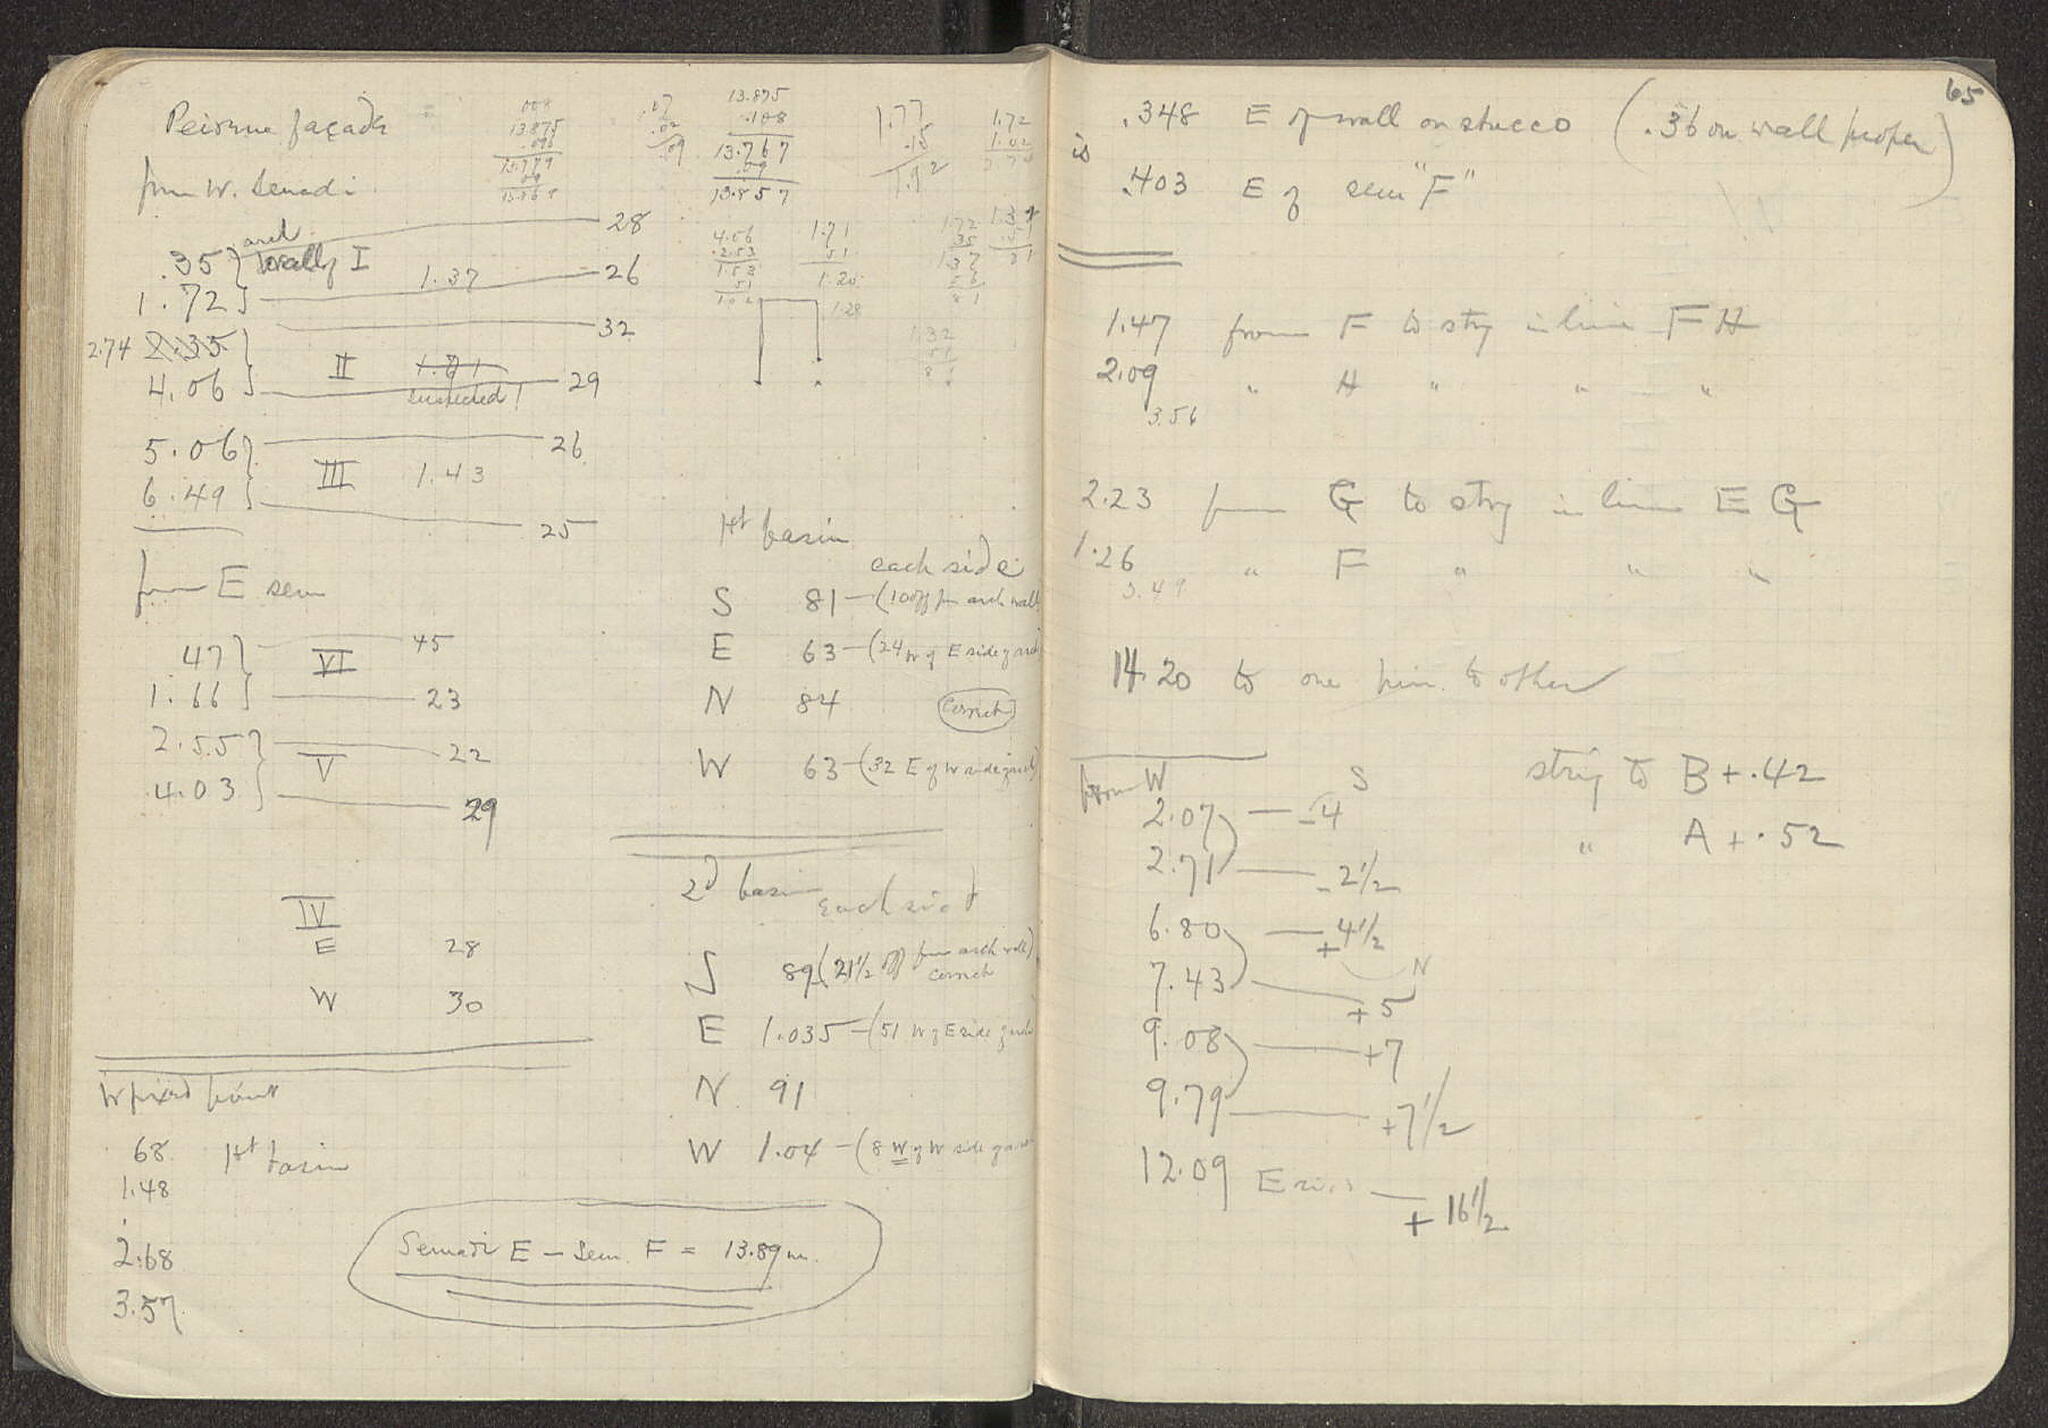 Peirene façade
from W. Semadi
.35 arch wall of I 28
1.72 1.37 26
2.74 2.35 32
II 1.81
4.06 suspected! 29
5.06 26
III 1.43
6.49 25
from E sem
47 45
VI
1.66 23
2.55 22
V
4.03 29
IV
E 28
W 30
W fixed point
68 1st basin
1.48
2.68
3.57
13.875
13.875
.108
13.767
.09
13.857
1.77
.15
1.92
1.72
1.02
4.06
2.53
1.53
51
1.02
1.71
51
1.20
1.28
1.72
35
1.37
1.32
51
81
1st basin
each side
S 81 — (10 off from arch wall
E 63 — (24 W of E side of arch)
N 84 (correct)
W 63 — (32 E of W side of arch)
2d basin each side
S 89 (21 1/2 off from arch wall) correct
E 1.035 — (51 W of E side of arch
N 91
W 1.04 — (8 W of W side of arch
Semadi E — Sem. F = 13.89 m.
65
.348 E of wall on stucco (.36 on wall proper)
is
.403 E of sem "F"
1.47 from F to strg in line FH
2.09 " H " " "
3.56
2.23 from G to strg in line EG
1.26 " F " " "
3.49
14.20 to one pin to other
from W S
2.07 — -4
2.71 — -2 1/2
6.80 — +4 1/2
N
7.43 — +5
9.08 — +7
9.79 — +7 1/2
12.09 E — +16 1/2
strig to B + .42
" A + .52